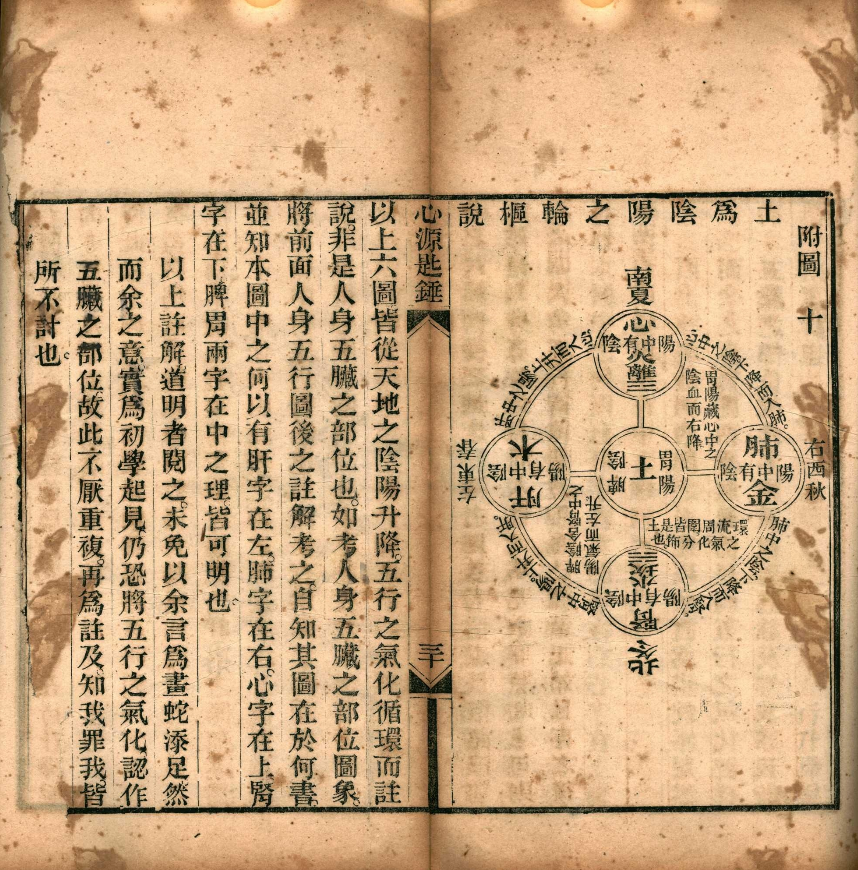 附圖 十
土爲陰陽之輪樞說
南夏
心
陽中有陰
火離三
心中之陽下降而入肺
胃陽藏心中之
陰血而右降
右西秋
肺
陽中有陰
金
胃陽
土
脾陰
木
陽有中陰
肝
左東春
環流周圍皆是土
之氣化分佈也
脾陰含腎中之
陽氣而左升
水
陽有中陰
腎
北冬
心源匙錘
三十
以上六圖皆從天地之陰陽升降。五行之氣化循環而註
說。非是人身五臟之部位也。如考人身五臟之部位圖象。
將前面人身五行圖後之註解考之。自知其圖在於何書。
並知本圖中之何以有肝字在左。肺字在右。心字在上。腎
字在下。脾胃兩字在中之理。皆可明也。
以上註解。道明者閱之。未免以余言爲畫蛇添足。然
而余之意。實爲初學起見。仍恐將五行之氣化。認作
五臟之部位。故此不厭重複。再爲註及。知我罪我。皆
所不計也。